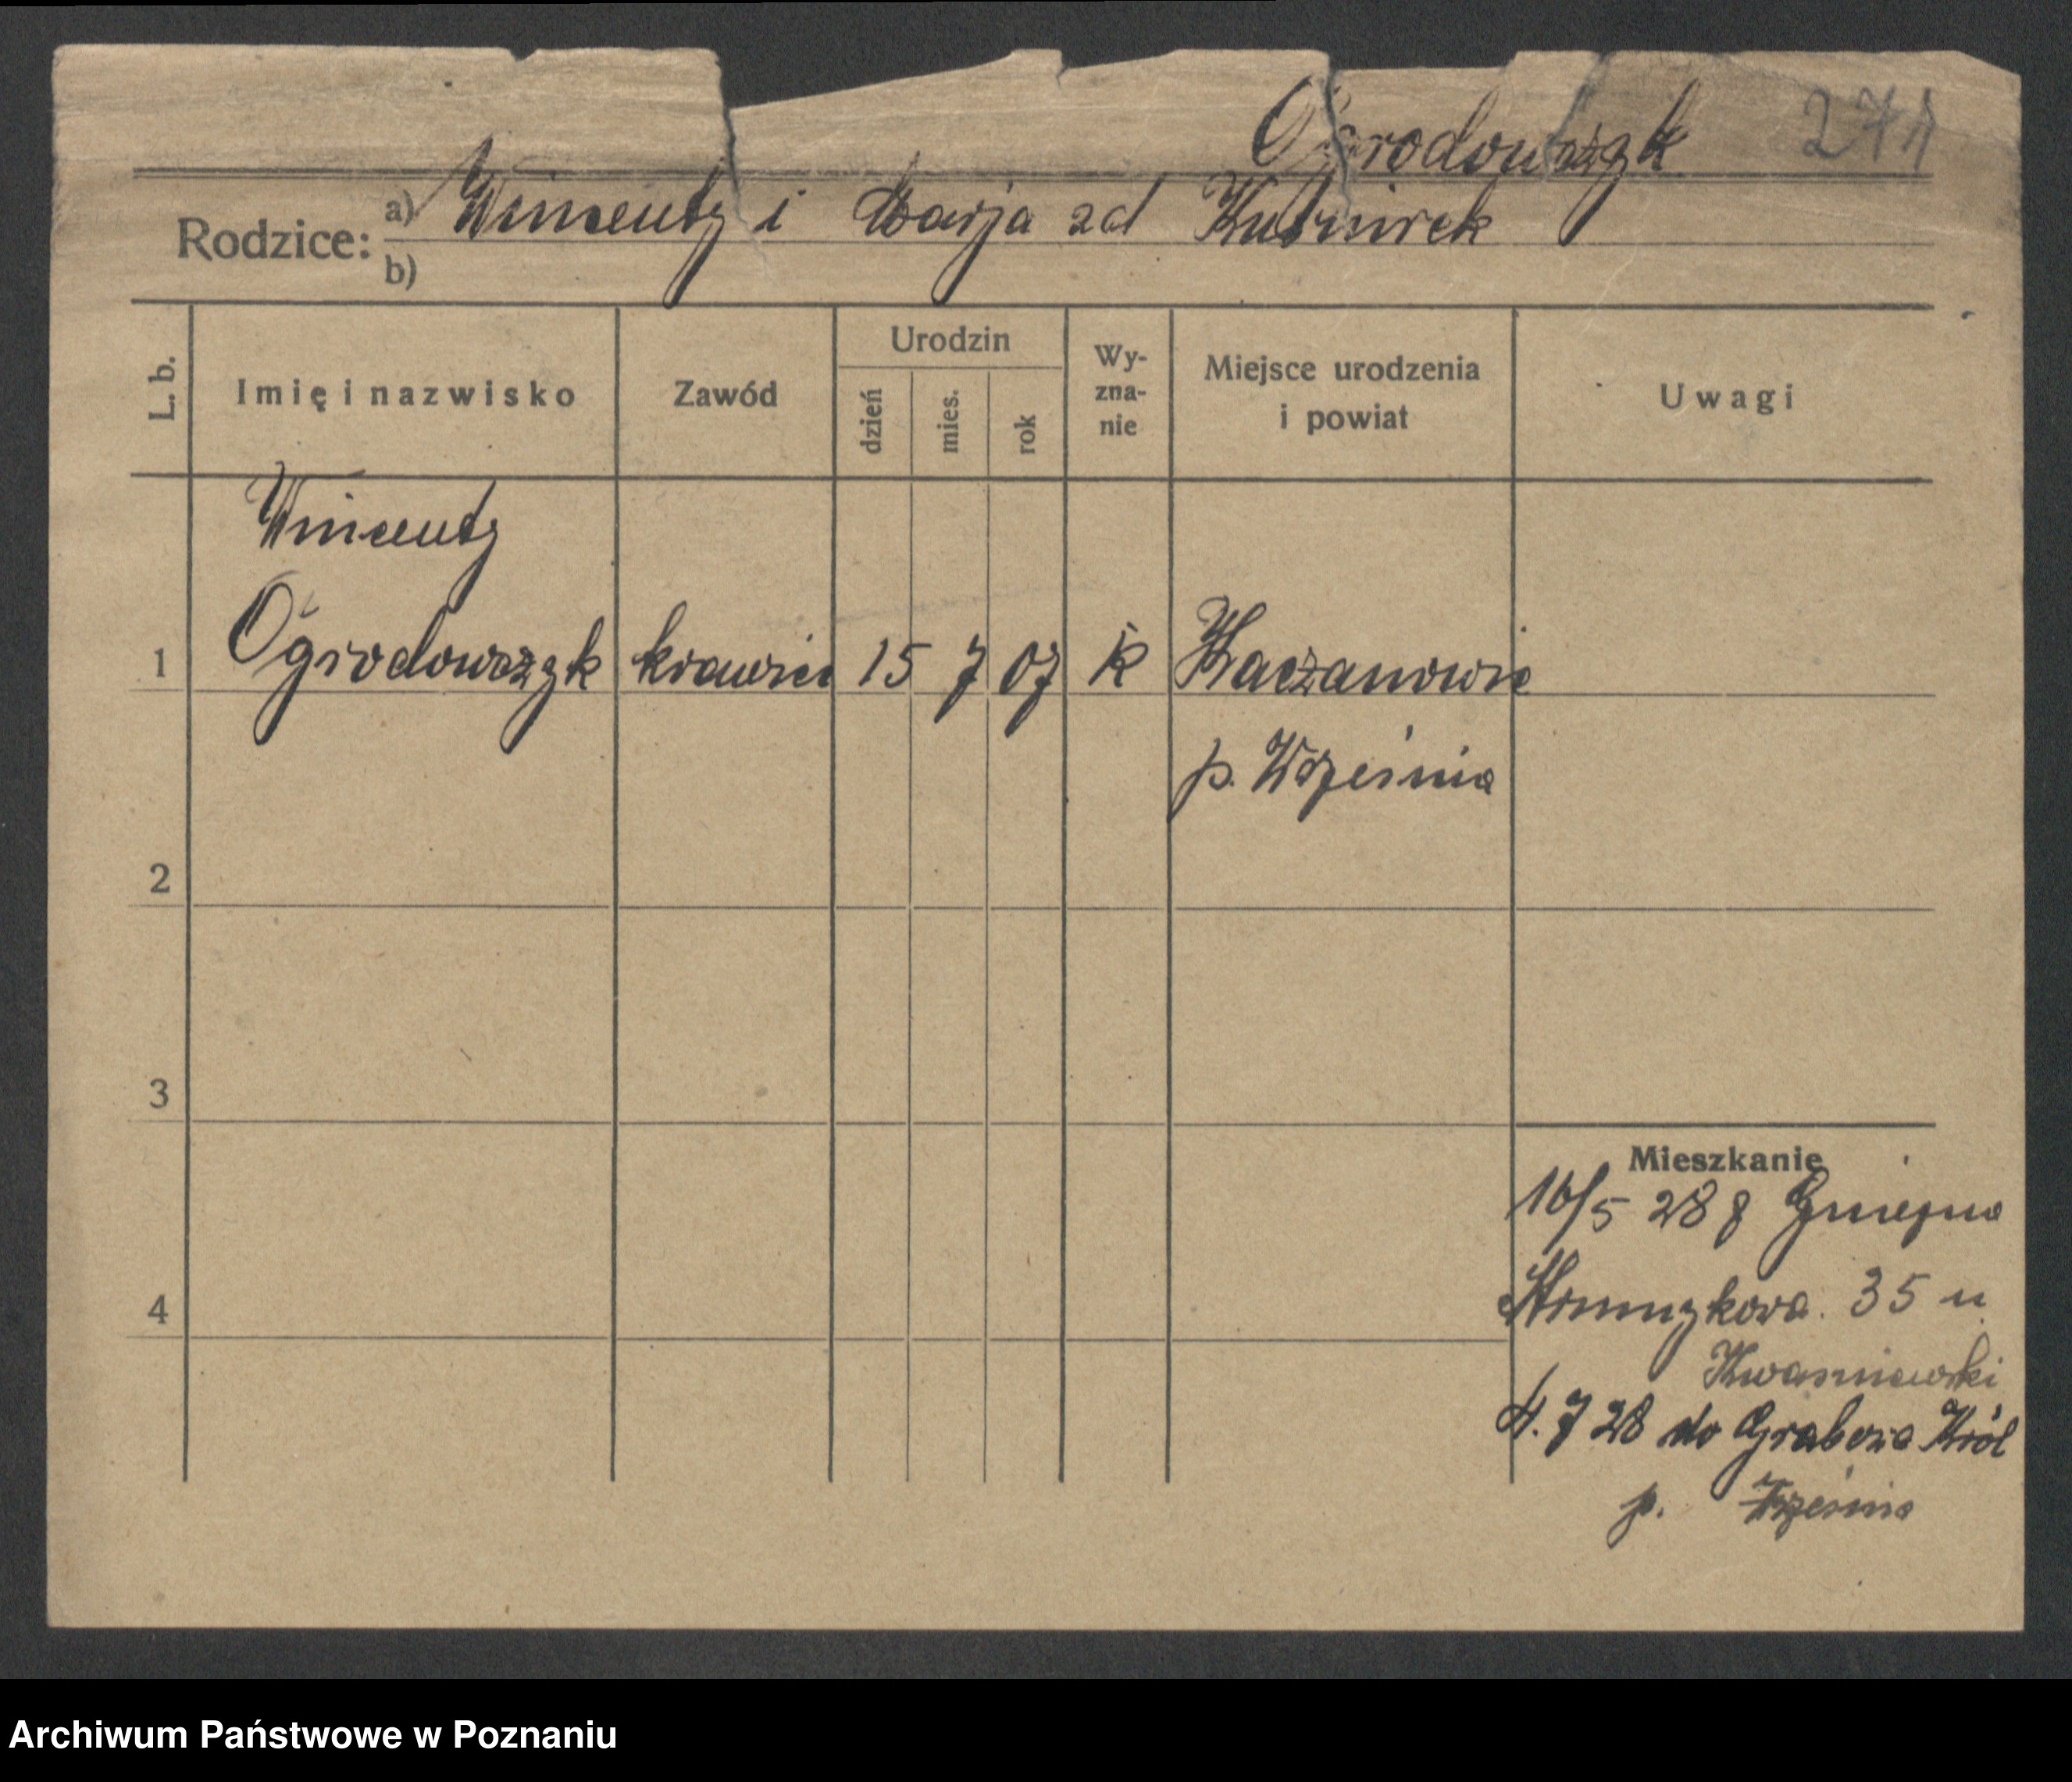 Ogrodowczyk 274
Rodzice: a) Wincenty i Marja zd Kuśnirek
b)
L. b. Imię i nazwisko Zawód Urodzin dzień mies. rok Wy-zna-nie Miejsce urodzenia i powiat Uwagi
Wincenty
1 Ogrodowczyk krawiec 15 7 07 k Kaczanowie
p. Września
2
3
Mieszkanie
16/5 28 z Gniezna
4 35 u
Kwasniewski
4. 7 28 do Grabowa Król
p. Września
Archiwum Państwowe w Poznaniu